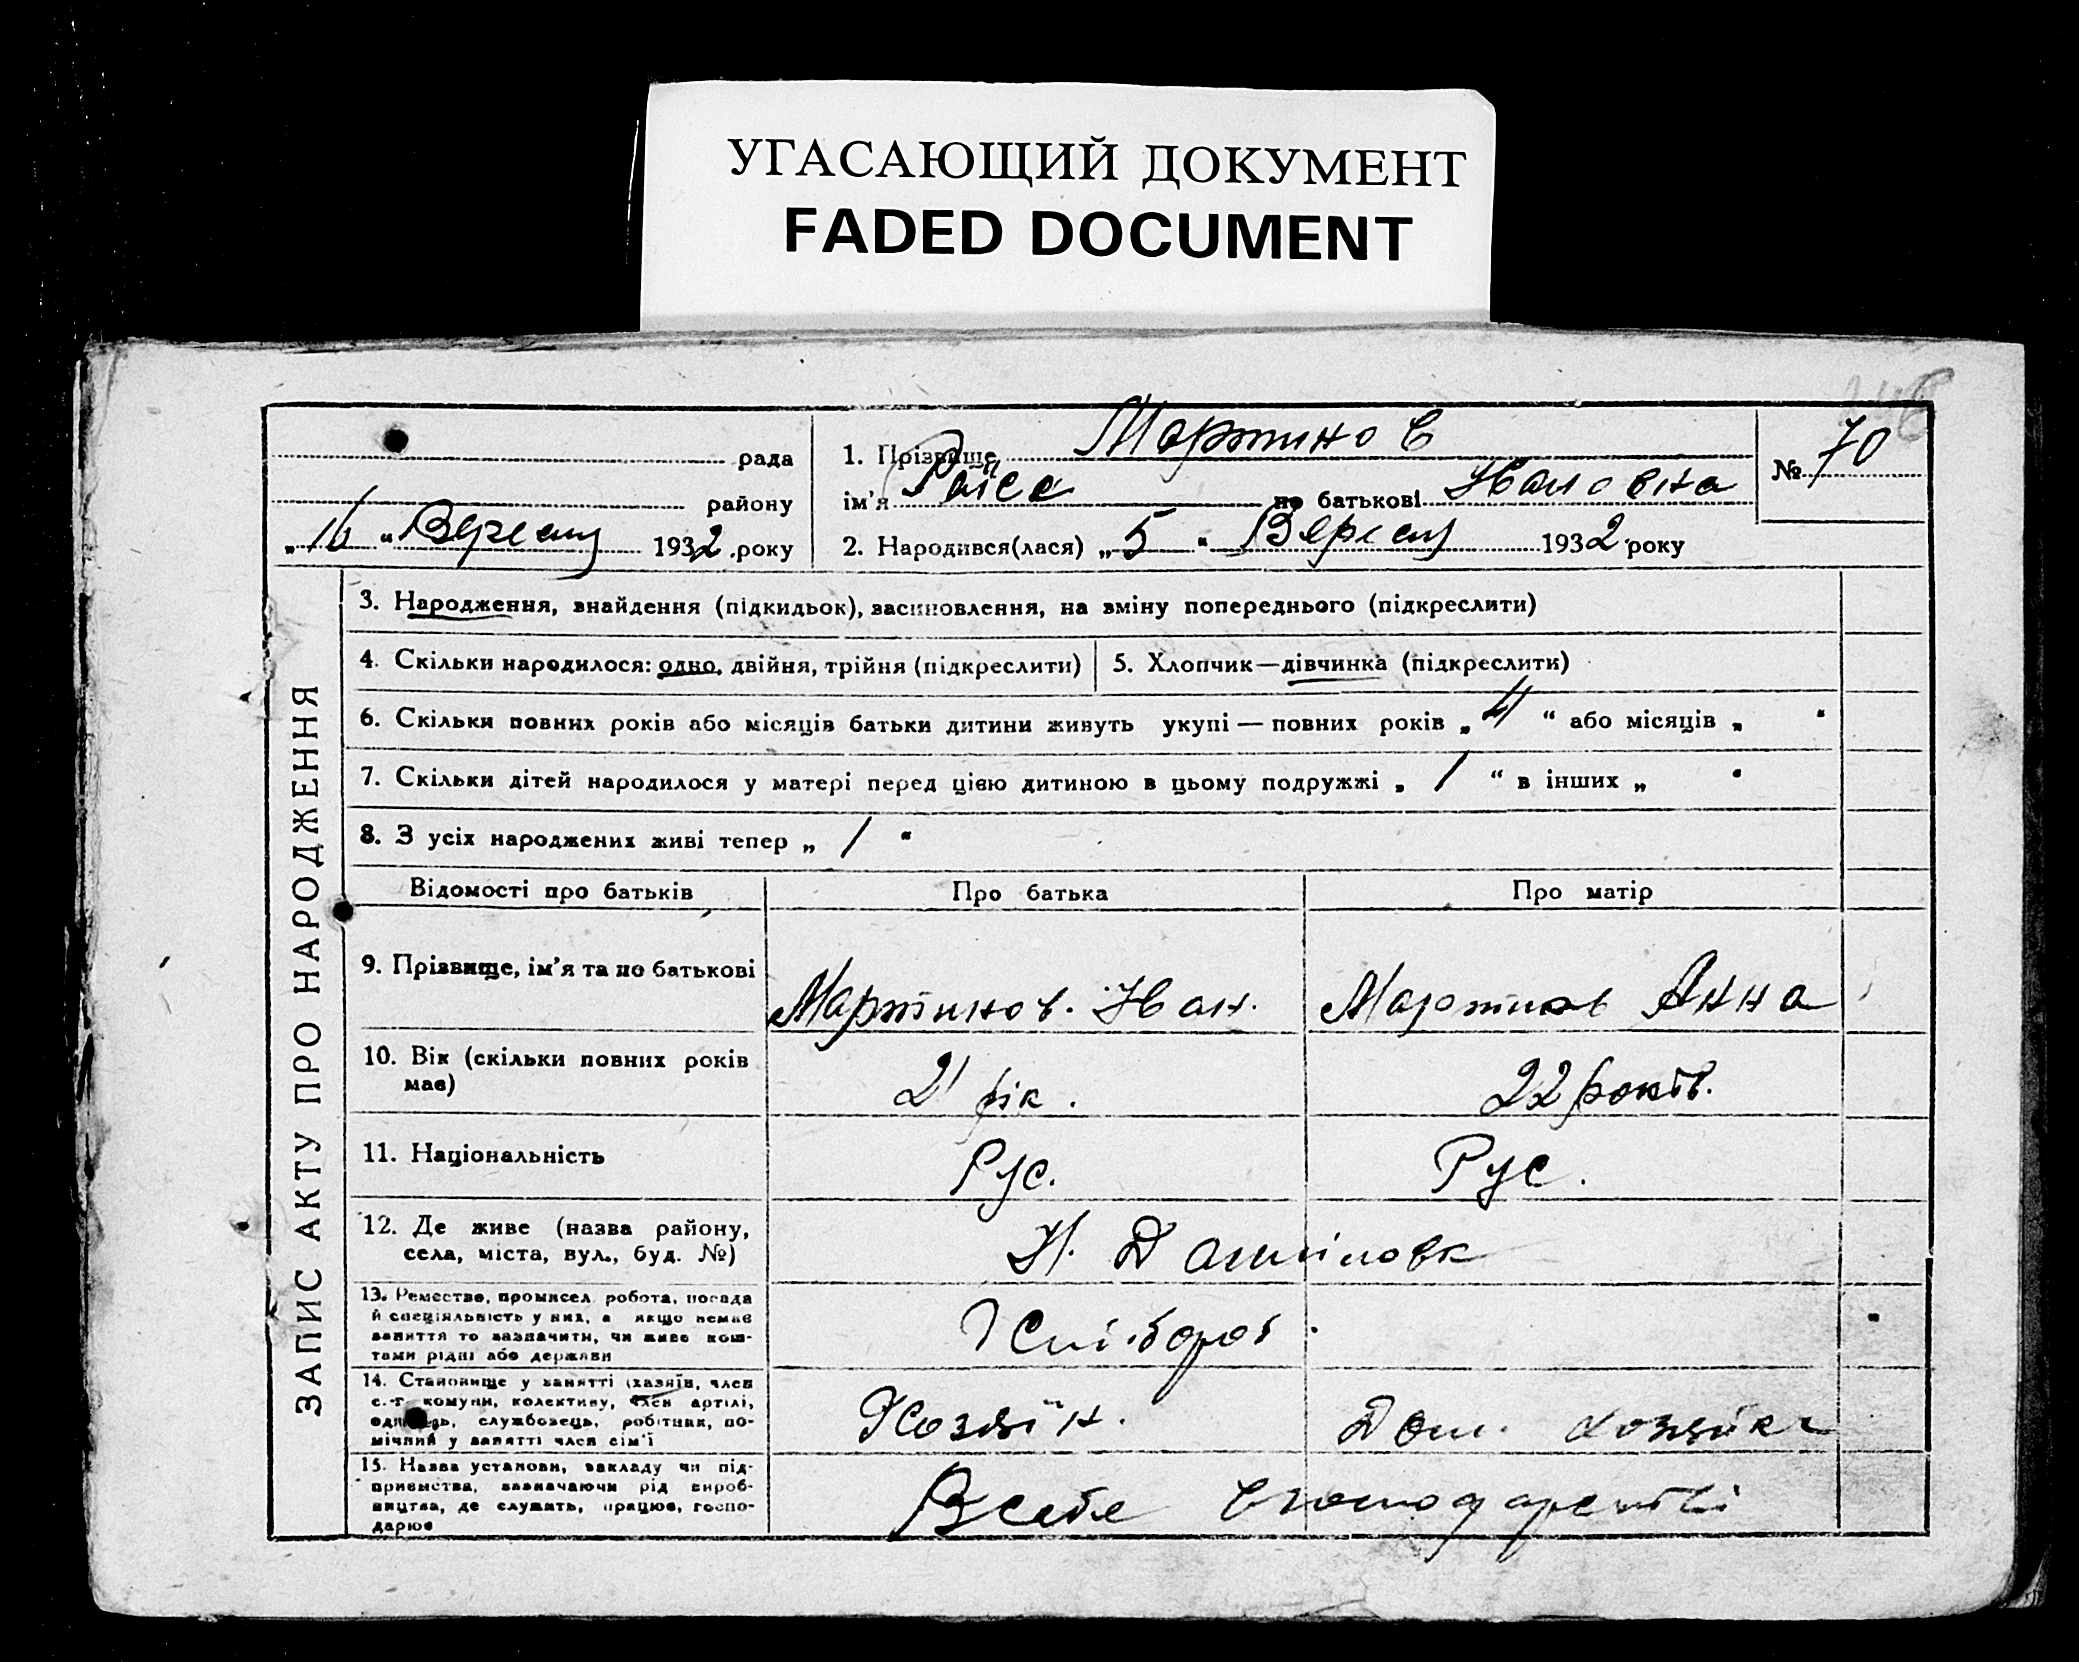 УГАСАЮЩИЙ ДОКУМЕНТ
FADED DOCUMENT
ЗАПИС АКТУ ПРО НАРОДЖЕННЯ
рада
району
„16“ Вересня 1932 року
1. Прізвище Мартинов
ім'я Раїса по батькові Івановна
№ 70
2. Народився(лася) „5“ Вересня 1932 року
3. Народження, знайдення (підкидьок), засиновлення, на зміну попереднього (підкреслити)
4. Скільки народилося: одно, двійня, трійня (підкреслити)
5. Хлопчик—дівчинка (підкреслити)
6. Скільки повних років або місяців батьки дитини живуть укупі — повних років „4“ або місяців „ “
7. Скільки дітей народилося у матері перед цією дитиною в цьому подружжі „1“ в інших „ “
8. З усіх народжених живі тепер „1“
Відомості про батьків Про батька Про матір
9. Прізвище, ім'я та по батькові Мартинов. Иван. Мартинов Анна
10. Вік (скільки повних років має) 21 рік. 22 років.
11. Національність Рус. Рус.
12. Де живе (назва району,
села, міста, вул., буд. №)
13. Ремество, промисел робота, посада
й спеціяльність у них, а якщо немає
заняття то зазначити, чи живе кош-
тами рідні або держави
14. Становище у занятті (хазяїн, член
с.-г. комуни, колективу, член артілі,
одинець, службовець, робітник, по-
мічний у занятті член сім'ї
Хозяїн. Дом. хозяйка
15. Назва установи, закладу чи під-
приємства, зазначаючи рід вироб-
ництва, де служить, працює, госпо-
дарює
Всебе вгосподарстві